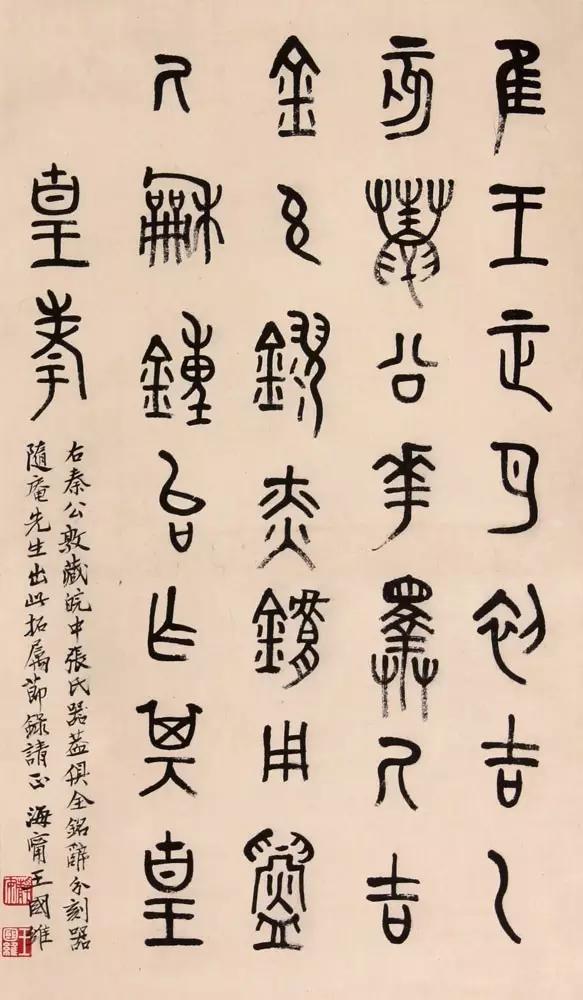 隹王正月初吉乙
亥鼄公華擇氒吉
金玄鏐赤用鑄
氒龢鐘台乍其皇
皇考
右秦公敦藏皖中張氏器蓋俱全銘辭分刻器
隨庵先生出此拓屬節錄請正 海甯王國維
王國維